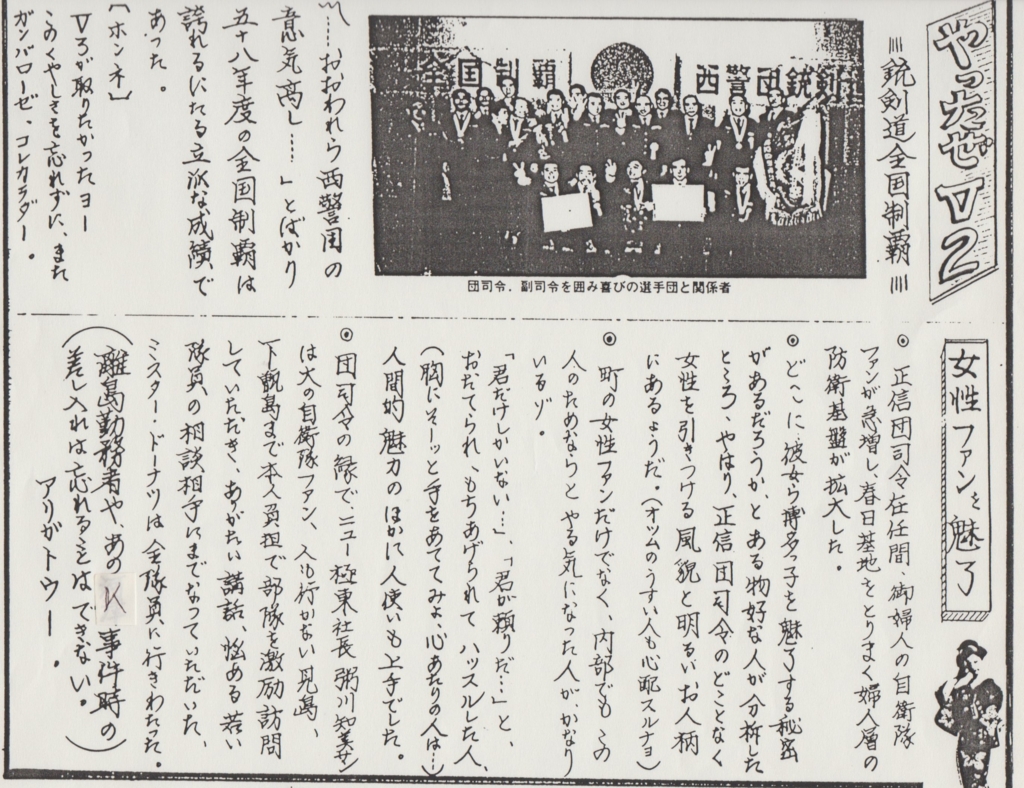 やったぜV2
≡銃剣道全国制覇≡
全国制覇
西警団銃剣
団司令、副司令を囲み喜びの選手団と関係者
「……おおわれら西警団の
意気高し……」とばかり
五十八年度の全国制覇は
誇れるにたる立派な成績で
あった。
【ホンネ】
V3が取りたかったヨー
このくやしさを忘れずに、また
ガンバローゼ・コレカラダー。
女性ファンを魅了
◎ 正信団司令在任間 御婦人の自衛隊
ファンが急増し、春日基地をとりまく婦人層の
防衛基盤が拡大した。
◎ どこに、彼女ら博多っ子を魅了する秘密
があるだろうか、とある物好な人が分析した
ところ、やはり、正信団司令のどことなく
女性を引きつける風貌と明るいお人柄
にあるようだ。(オツムのうすい人も心配スルナヨ)
◎ 町の女性ファンだけでなく、内部でも この
人のためならと やる気になった人が、かなり
いるゾ。
「君だけしかいない…」、「君が頼りだ……」と、
おだてられ、もちあげられて ハッスルした人、
(胸にそーッと手をあててみよ、心あたりの人は…)
人間的魅力のほかに人使いも上手でした。
◎ 団司令の縁で、ニュー極東社長 粥川知美サン
は大の自衛隊ファン、人も行かない見島、
下甑島まで本人負担で部隊を激励訪問
していただき、ありがたい講話、悩ある若い
隊員の相談相手にまでなっていただいた、
ミスター・ドーナツは全隊員に行きわたった。
(離島勤務者や、あの K 事件時の
差し入れは忘れることはできない。)
アリガトウー.